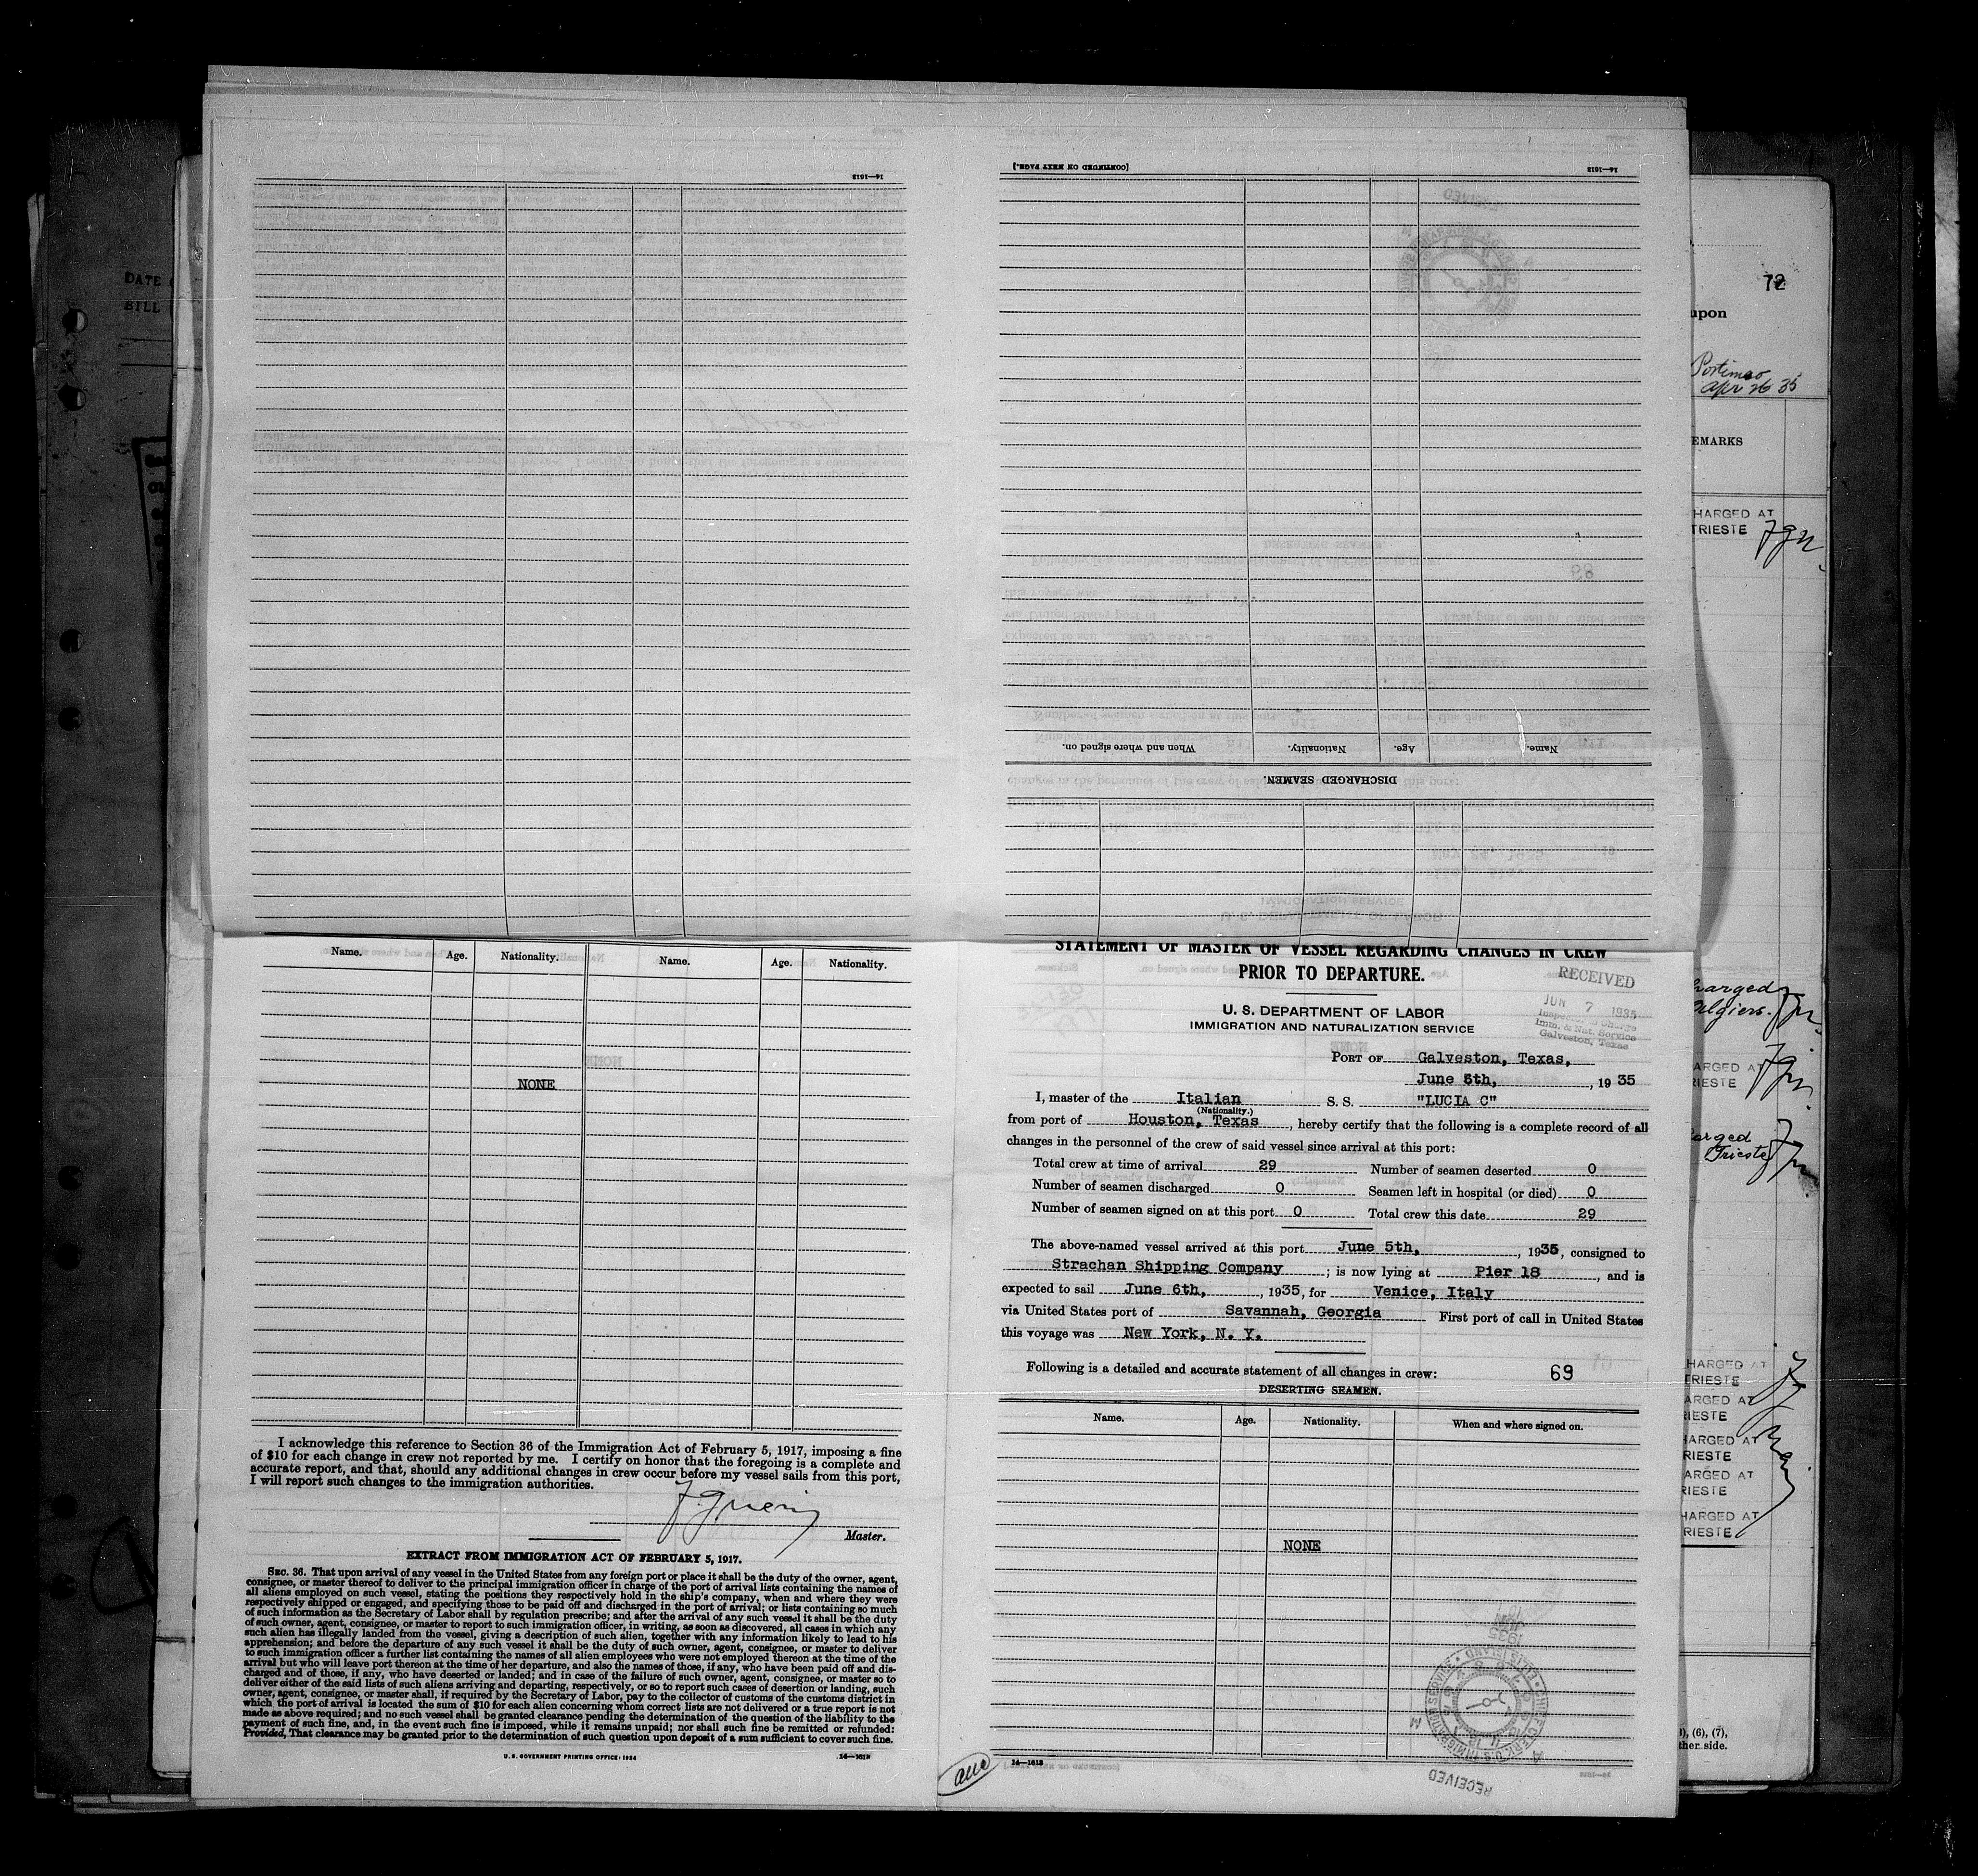 14—1613
[CONTINUED ON NEXT PAGE.]
14—1613
When and where signed on.
Nationality.
Age.
Name.
DISCHARGED SEAMEN.
DATE
BILL
72
upon
Portimao
Apr 26 35
EMARKS
HARGED AT
TRIESTE
harged
Algiers.
ARGED AT
RIESTE
arged
Trieste
HARGED AT
TRIESTE
ARGED AT
RIESTE
HARGED AT
RIESTE
ARGED AT
RIESTE
HARGED AT
RIESTE
), (6), (7),
ther side.
Name.
Age.
Nationality.
Name.
Age.
Nationality.
NONE
I acknowledge this reference to Section 36 of the Immigration Act of February 5, 1917, imposing a fine
of $10 for each change in crew not reported by me. I certify on honor that the foregoing is a complete and
accurate report, and that, should any additional changes in crew occur before my vessel sails from this port,
I will report such changes to the immigration authorities.
Master.
EXTRACT FROM IMMIGRATION ACT OF FEBRUARY 5, 1917.
SEC. 36. That upon arrival of any vessel in the United States from any foreign port or place it shall be the duty of the owner, agent,
consignee, or master thereof to deliver to the principal immigration officer in charge of the port of arrival lists containing the names of
all aliens employed on such vessel, stating the positions they respectively hold in the ship's company, when and where they were
respectively shipped or engaged, and specifying those to be paid off and discharged in the port of arrival; or lists containing so much
of such information as the Secretary of Labor shall by regulation prescribe; and after the arrival of any such vessel it shall be the duty
of such owner, agent, consignee, or master to report to such immigration officer, in writing, as soon as discovered, all cases in which any
such alien has illegally landed from the vessel, giving a description of such alien, together with any information likely to lead to his
apprehension; and before the departure of any such vessel it shall be the duty of such owner, agent, consignee, or master to deliver
to such immigration officer a further list containing the names of all alien employees who were not employed thereon at the time of the
arrival but who will leave port thereon at the time of her departure, and also the names of those, if any, who have been paid off and dis-
charged and of those, if any, who have deserted or landed; and in case of the failure of such owner, agent, consignee, or master so to
deliver either of the said lists of such aliens arriving and departing, respectively, or so to report such cases of desertion or landing, such
owner, agent, consignee, or master shall, if required by the Secretary of Labor, pay to the collector of customs of the customs district in
which the port of arrival is located the sum of $10 for each alien concerning whom correct lists are not delivered or a true report is not
made as above required; and no such vessel shall be granted clearance pending the determination of the question of the liability to the
payment of such fine, and, in the event such fine is imposed, while it remains unpaid; nor shall such fine be remitted or refunded:
Provided, That clearance may be granted prior to the determination of such question upon deposit of a sum sufficient to cover such fine.
U. S. GOVERNMENT PRINTING OFFICE: 1934
14—1613
STATEMENT OF MASTER OF VESSEL REGARDING CHANGES IN CREW
PRIOR TO DEPARTURE.
RECEIVED
JUN 7 1935
Inspector in Charge
Imm. & Nat. Service
Galveston, Texas
U. S. DEPARTMENT OF LABOR
IMMIGRATION AND NATURALIZATION SERVICE
PORT OF Galveston, Texas,
June 6th, , 19 35
I, master of the Italian S. S. "LUCIA C"
(Nationality.)
from port of Houston, Texas , hereby certify that the following is a complete record of all
changes in the personnel of the crew of said vessel since arrival at this port:
Total crew at time of arrival 29 Number of seamen deserted 0
Number of seamen discharged 0 Seamen left in hospital (or died) 0
Number of seamen signed on at this port 0 Total crew this date 29
The above-named vessel arrived at this port June 5th, , 1935, consigned to
Strachan Shipping Company ; is now lying at Pier 18 , and is
expected to sail June 6th, , 1935, for Venice, Italy
via United States port of Savannah, Georgia First port of call in United States
this voyage was New York, N. Y.
Following is a detailed and accurate statement of all changes in crew: 69
DESERTING SEAMEN.
Name.
Age.
Nationality.
When and where signed on.
NONE
14—1613
RECEIVED